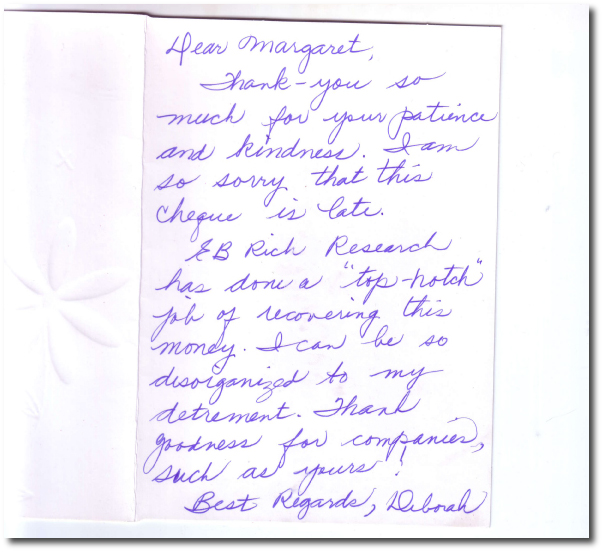 Dear Margaret,
Thank-you so
much for your patience
and kindness. I am
so sorry that this
cheque is late.
EB Rich Research
has done a "top-notch"
job of recovering this
money. I can be so
disorganized to my
detrement. Thank
goodness for companies,
such as yours!
Best Regards, Deborah